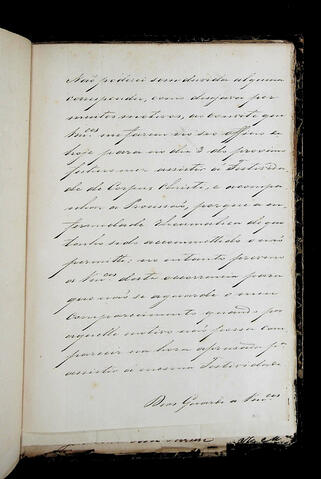 Não poderei sem duvida alguma
corresponder, como desejava por
muitos motivos, ao convite que
Vm.ces me fazem em seo officio de
hoje para no dia 3 do proximo
futuro mez assistir a Festivida
de de Corpus Christi, e acompa
nhar a Procissão, porque a en
fermidade rheumatica de que
tenho sido accommettido o não
permitte; no entanto previno
a Vm.ces desta occorrencia para
que não se aguarde o meu
comparecimento, quando por
aquelle motivo não possa com
parecer na hora aprasada pª
assistir a mesma Festividade.
Deos Guarde a Vm.ces